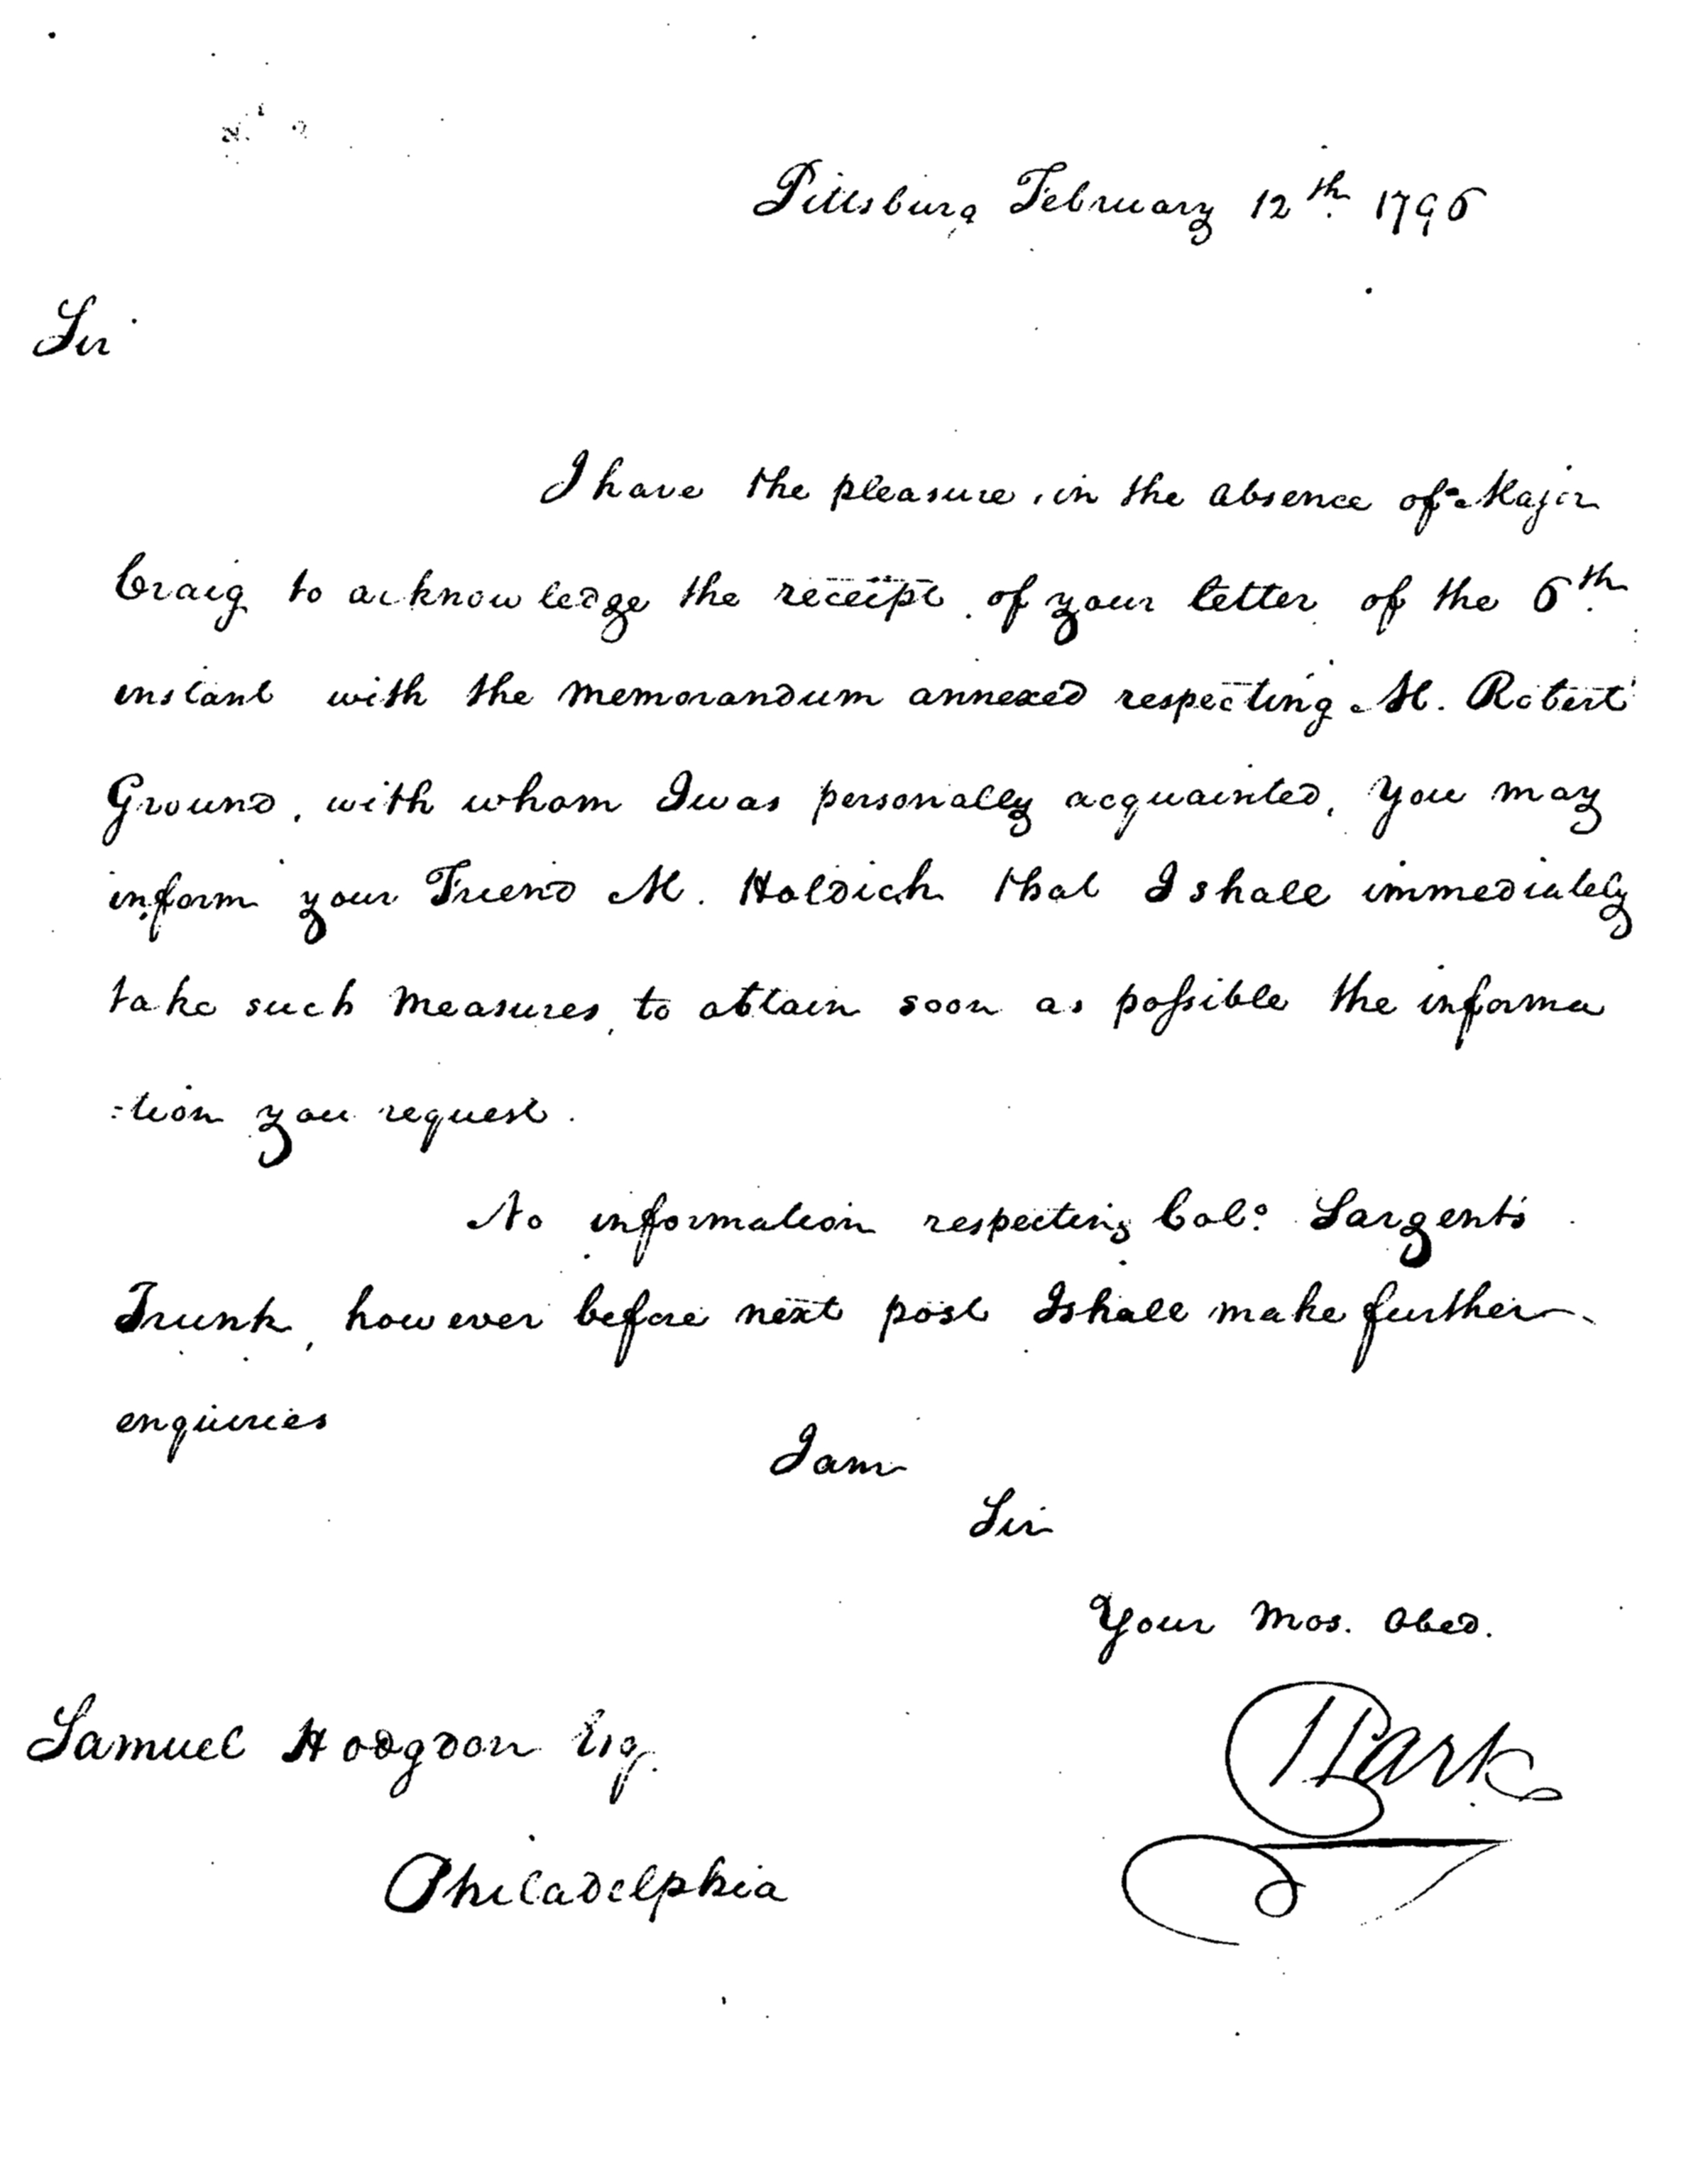 Pittsburg February 12th. 1796
Sir
I have the pleasure, in the absence of Major
Craig to acknowledge the receipt of your letter of the 6th.
instant with the memorandum annexed respecting M. Robert
Ground, with whom I was personally acquainted, you may
inform your Friend M. Holdich that I shall immediately
take such measures, to obtain soon as possible the informa
=tion you request.
No information respecting Colo. Sargent's
Trunk, however before next post I shall make further
enquiries
I am
Sir
Your Mos. Obed.
Samuel Hodgdon Esq.
Philadelphia